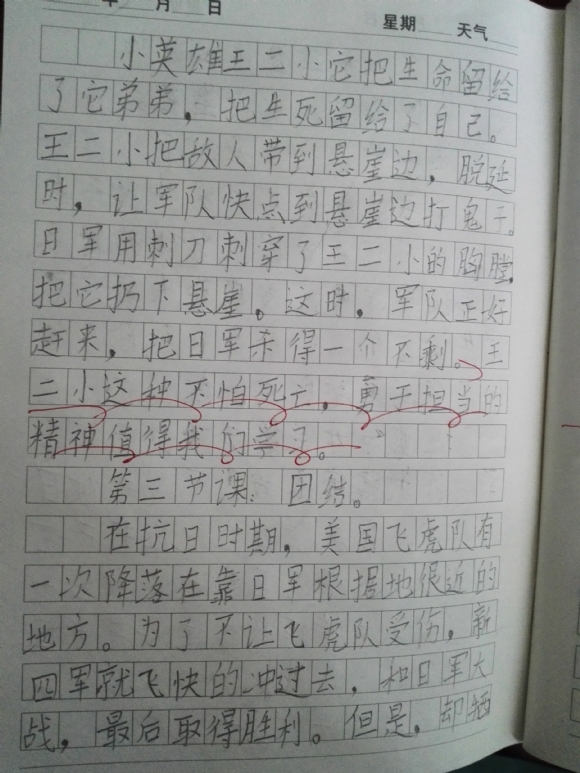 年 月 日 星期 天气
小英雄王二小它把生命留给
了它弟弟，把生死留给了自己。
王二小把敌人带到悬崖边，脱延
时，让军队快点到悬崖边打鬼子。
日军用刺刀刺穿了王二小的胸膛，
把它扔下悬崖。这时，军队正好
赶来，把日军杀得一个不剩。王
二小这种不怕死亡，勇于担当的
精神值得我们学习。
第三节课：团结。
在抗日时期，美国飞虎队有
一次降落在靠日军根据地很近的
地方。为了不让飞虎队受伤，新
四军就飞快的冲过去，和日军大
战，最后取得胜利。但是，却牺